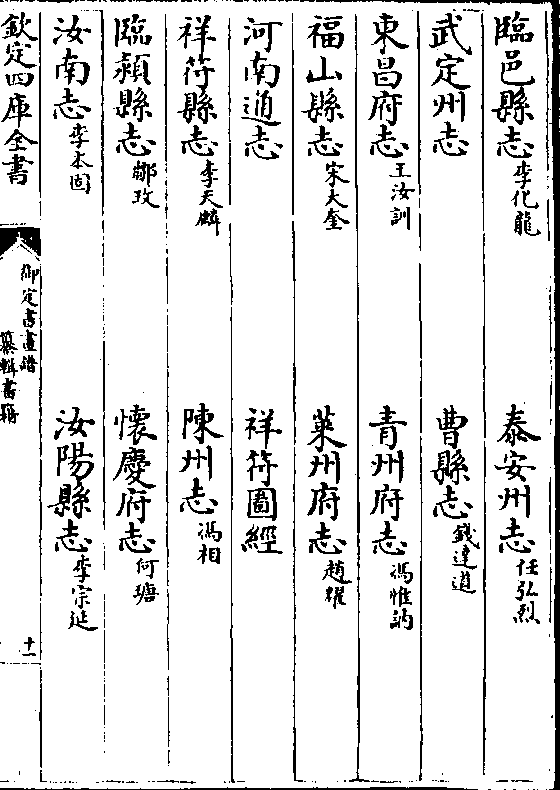 臨邑縣志李化龍 泰安州志任弘烈
武定州志 曹縣志錢達道
東昌府志王汝訓 青州府志馮惟訥
福山縣志宋大奎 萊州府志趙耀
河南通志 祥符圖經
祥符縣志李天麟 陳州志馮相
臨潁縣志鄒玫 懷慶府志何瑭
汝南志李本固 汝陽縣志李宗延
欽定四庫全書
御定書畫譜
纂輯書籍
十一